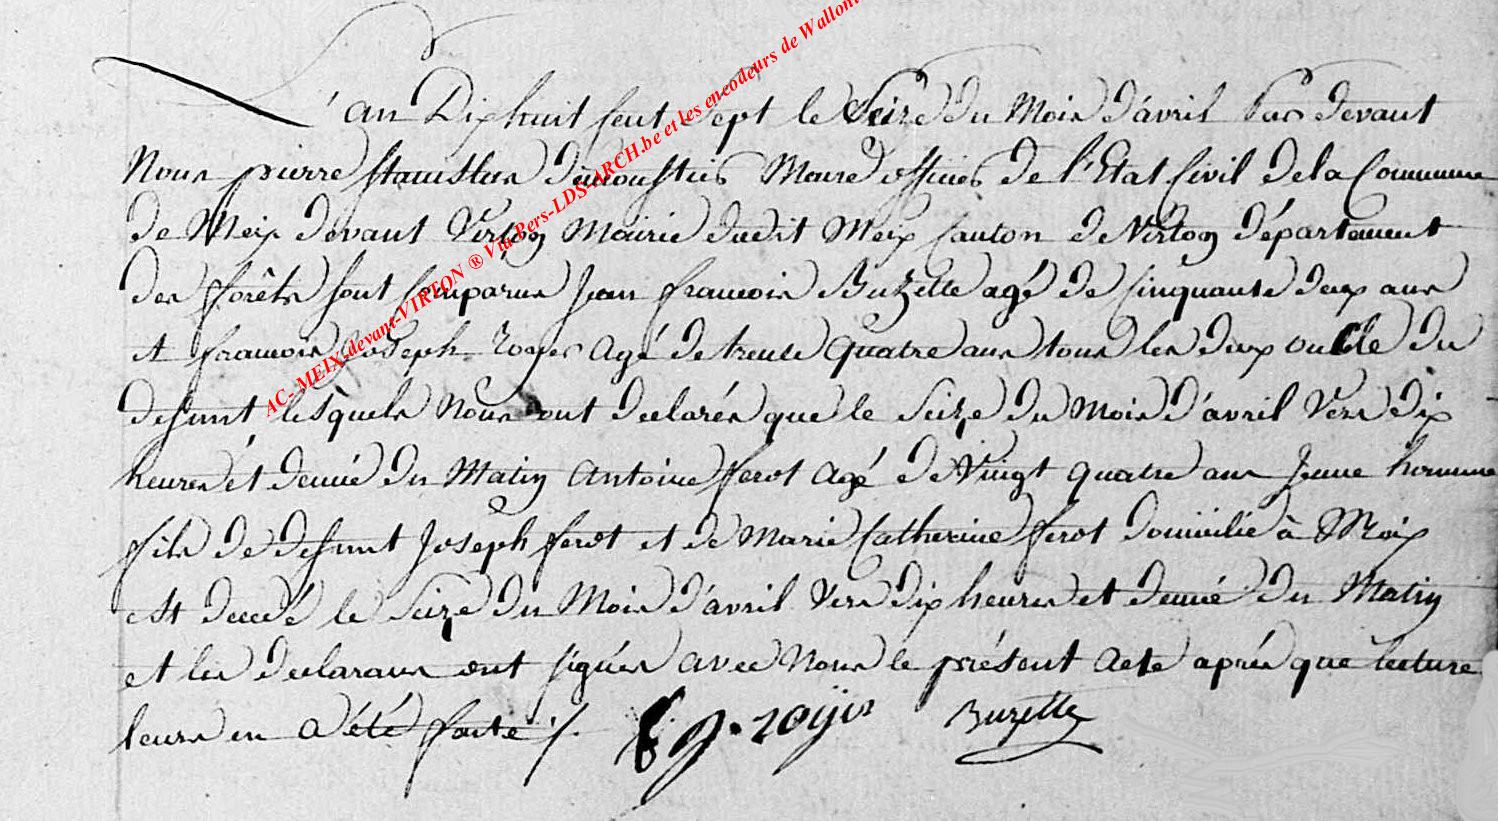 L'an Dix huit Cent Sept le Seize du Mois d'avril Par devant
Nous pierre stanislas demoustiés Maire officier de l'Etat Civil de la Commune
de Meix devant Virton Mairie dudit Meix Canton de Virton département
des forêts sont Comparus Jean francois Buzette agé de Cinquante deux ans
et francois Joseph roger agé de trente quatre ans tous les deux oncle du
defunt lesquels Nous ont declarés que le Seize du Mois d'avril Vers dix
heures et demié du Matin antoine ferot agé de Vingt quatre ans Jeune homme
fils de defunt Joseph ferot et de Marie Catherine ferot domicilié à Meix
est decedé le Seize du Mois d'avril Vers dix heures et demié du Matin
et les declarans ont signés avec Nous le présent acte aprés que lecture
leurs en a été faite ·/.
f g. roger Buzette
AC- MEIX-devant-VIRTON ® Via Pers-LDS-ARCH.be et les encodeurs de Wallonie